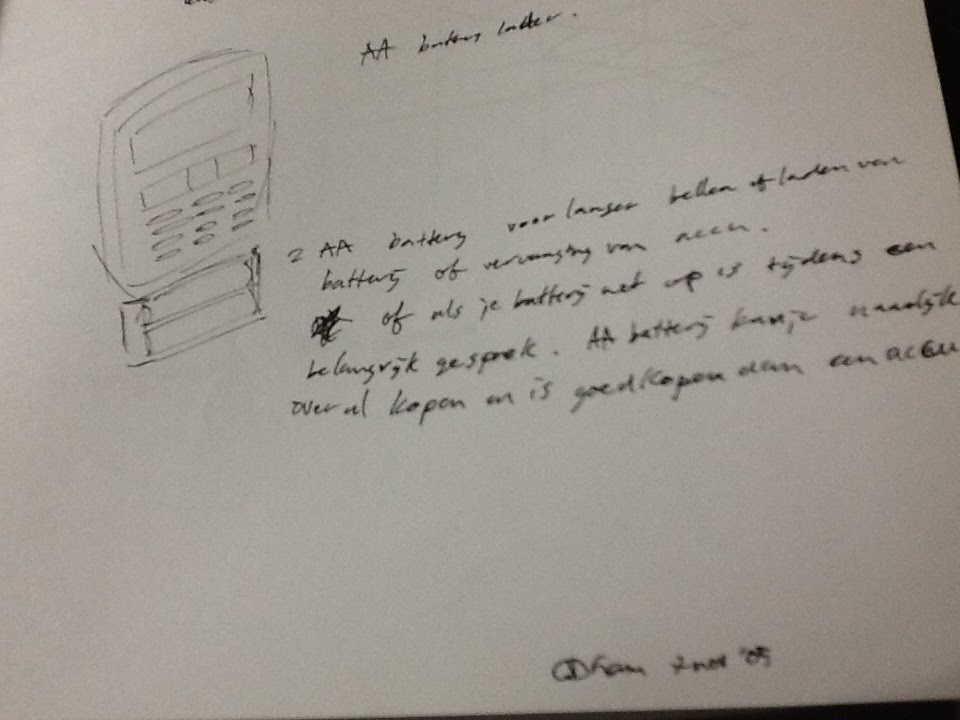 AA battery lader.
2 AA batterij voor langer bellen of laden van
batterij of vervanging van accu.
of als je batterij net op is tijdens een
belangrijk gesprek. AA batterij kan je naarlijk
overal kopen en is goedkopen dan een accu
7 nov '05